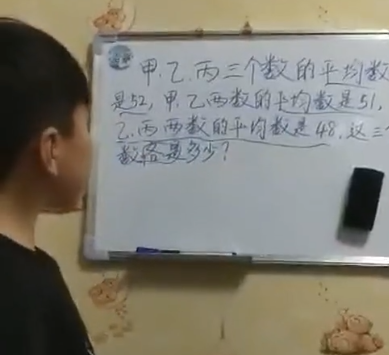 甲.乙.丙三个数的平均数
是52,甲.乙两数的平均数是51,
乙.丙两数的平均数是48.这三个
数各是多少?